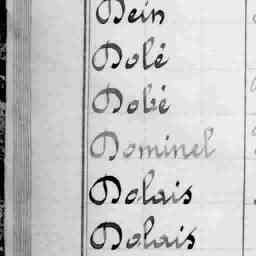 Dein
Dolé
Dobé
Dominel
Dolais
Dolais